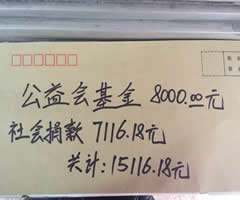 公益会基金 8000.00元
社会捐款 7116.18元
共计:15116.18元